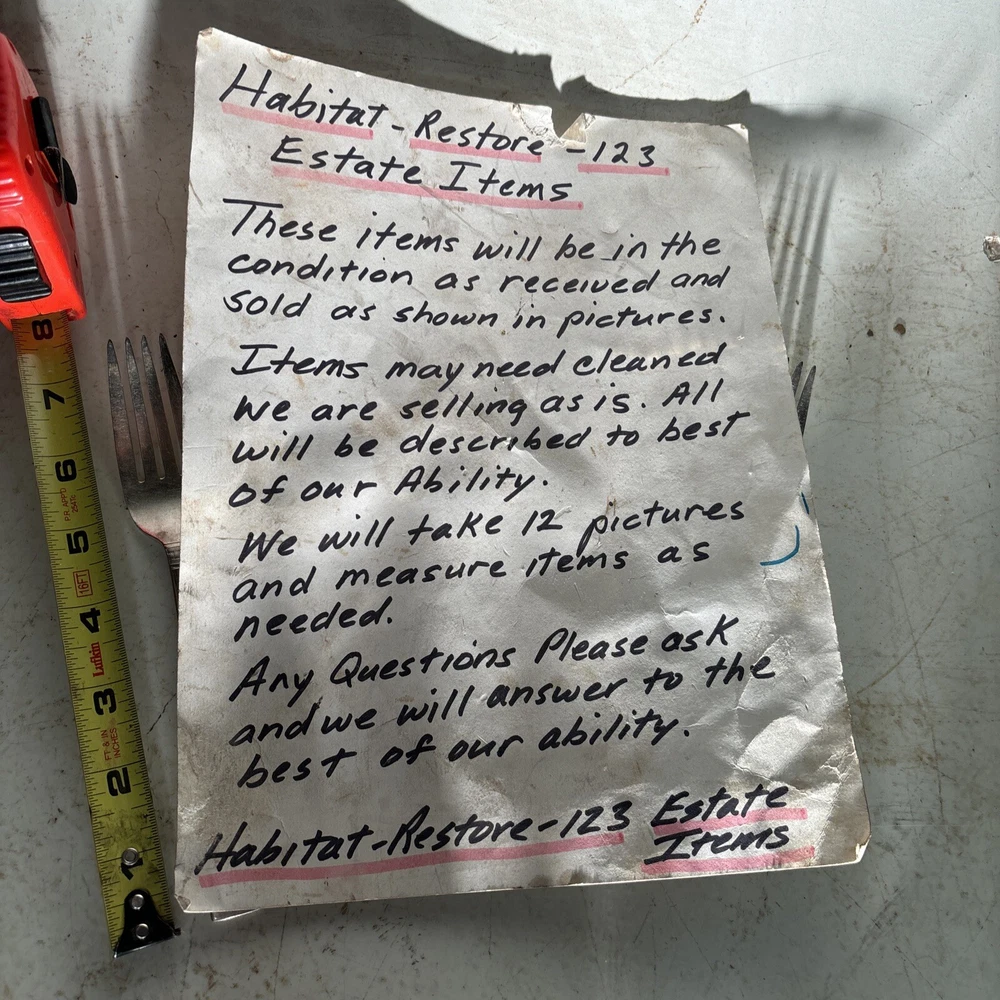 Habitat-Restore-123
Estate Items
These items will be in the
condition as received and
sold as shown in pictures.
Items may need cleaned
we are selling as is. All
will be described to best
of our Ability.
We will take 12 pictures
and measure items as
needed.
Any Questions Please ask
and we will answer to the
best of our ability.
Habitat-Restore-123 Estate
Items
8
7
6
5
16FT
4
Lufkin
3
FT & IN
INCHES
2
1